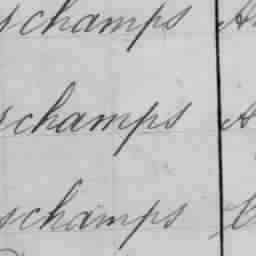 schamps A
schamps A
schamps